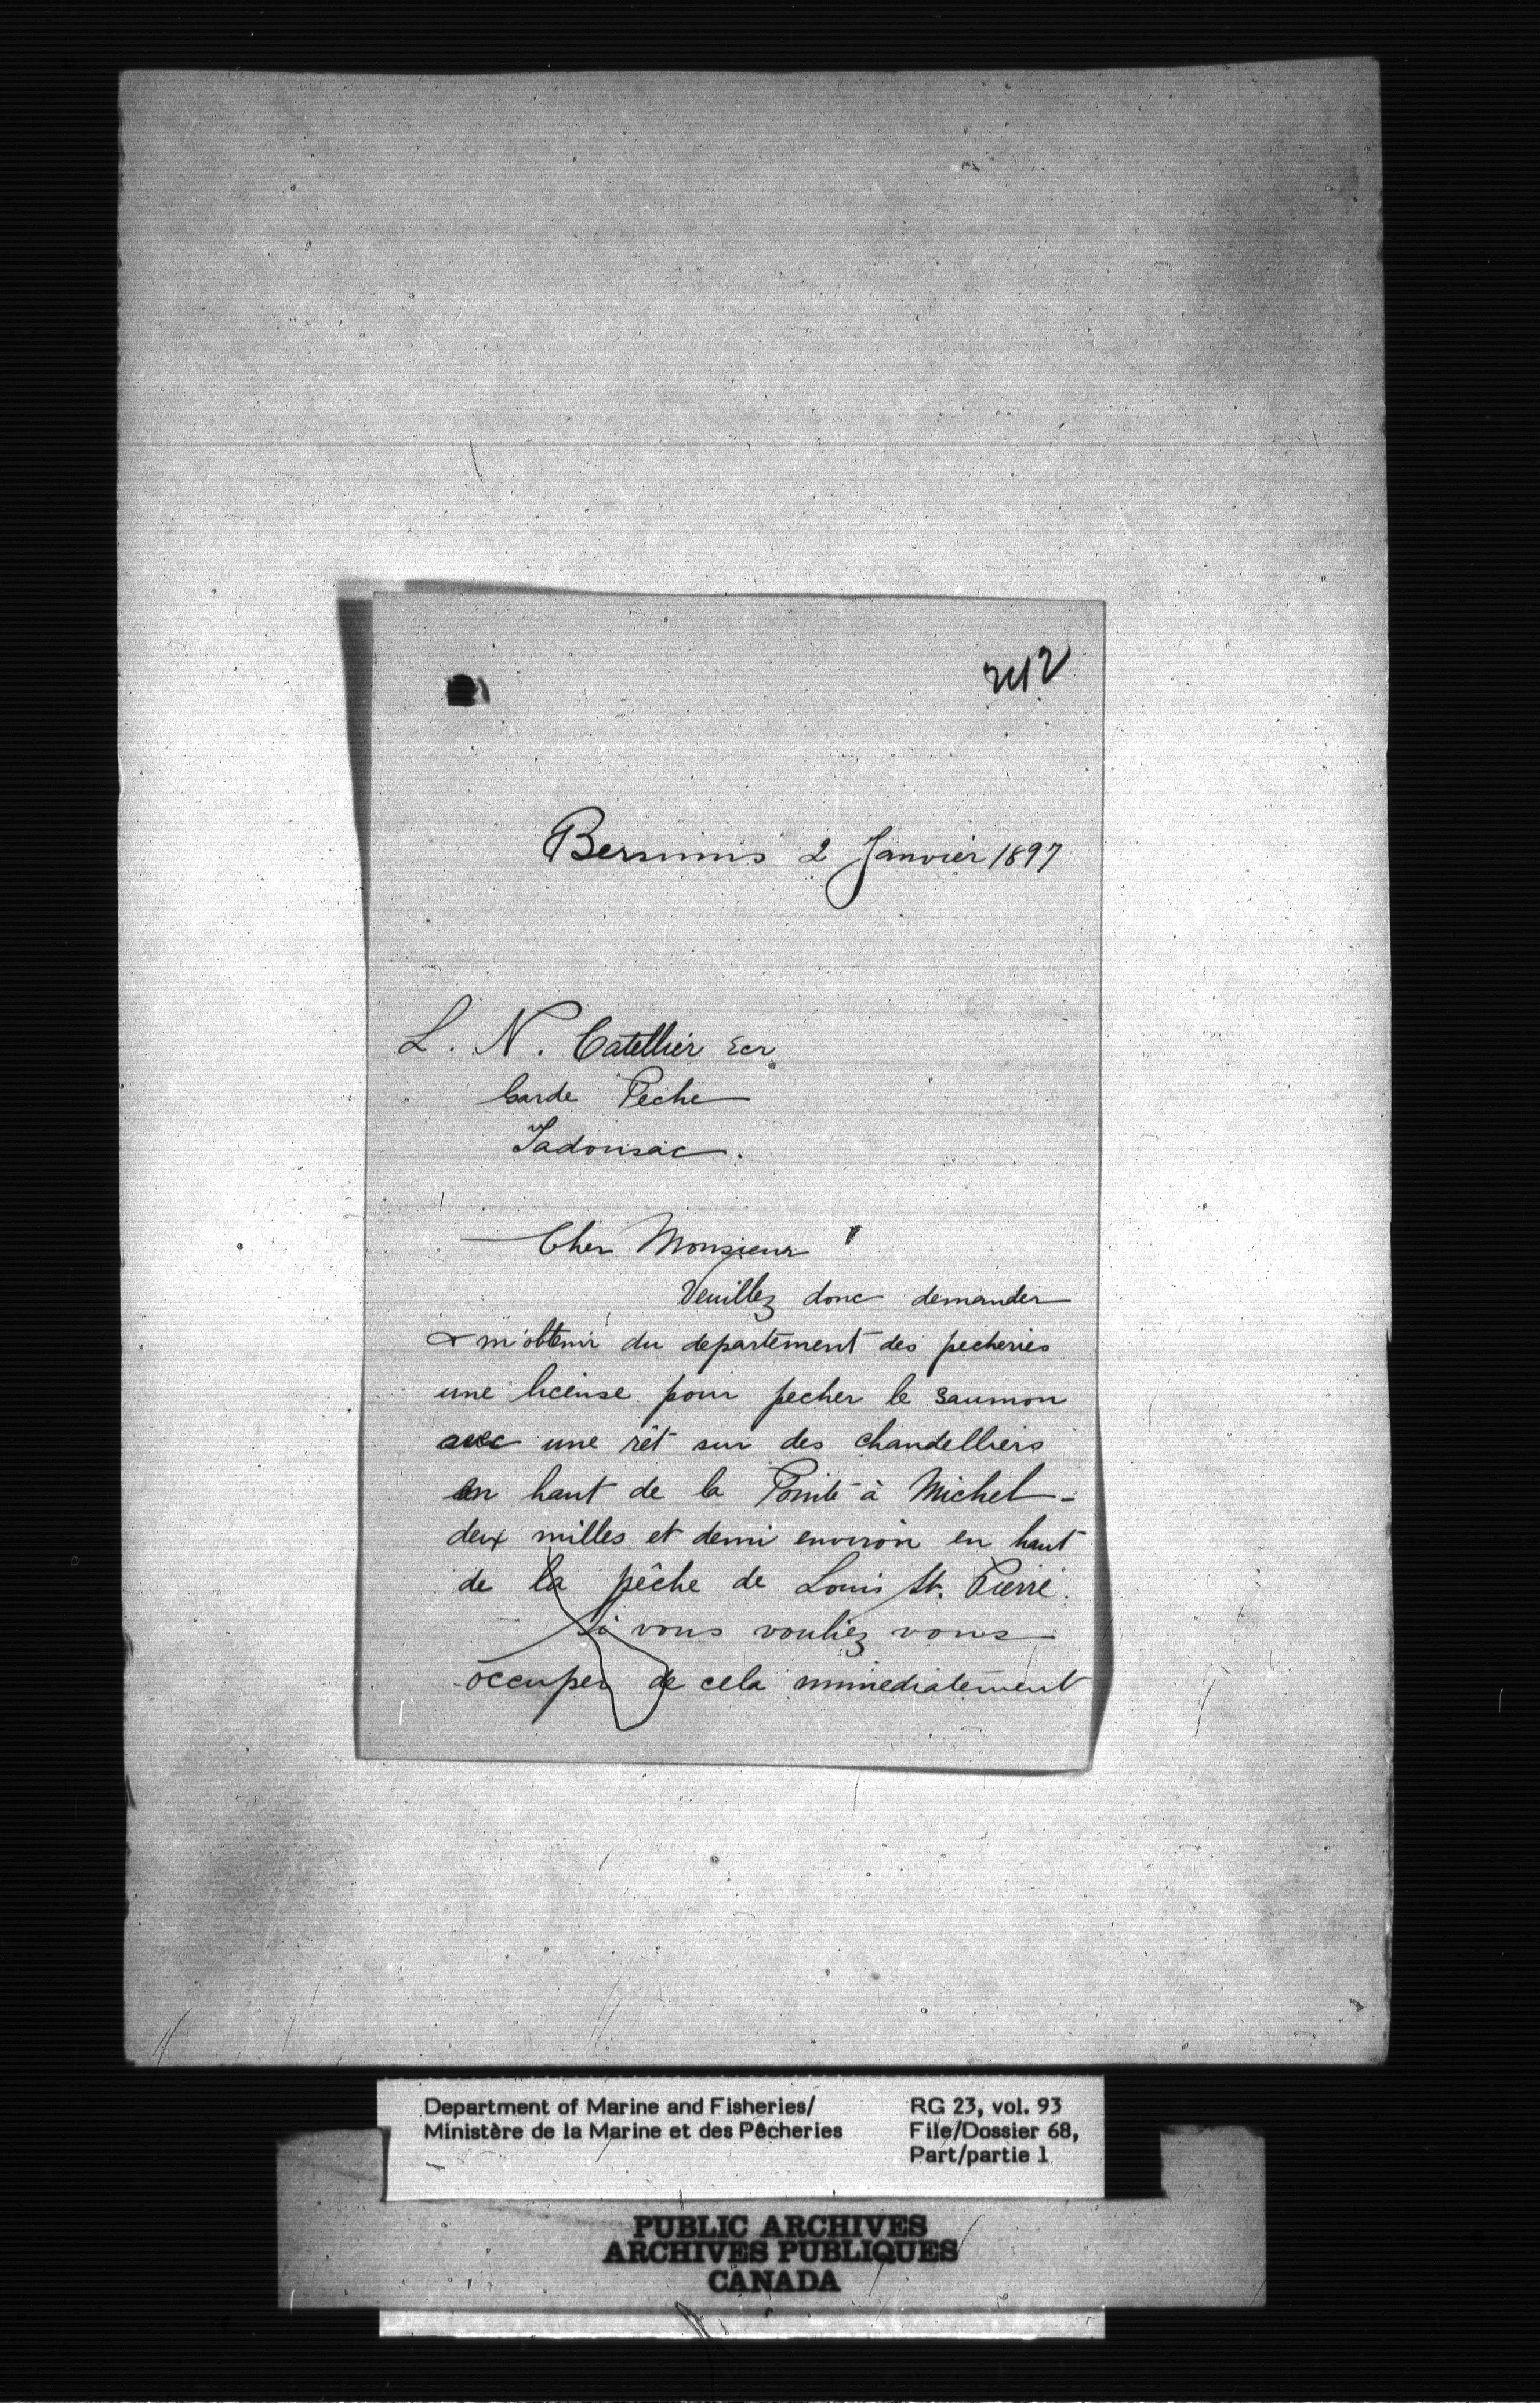 242
Bersimis 2 Janvier 1897
L. N. Catellier Ecr.
Garde Peche
Tadousac.
Cher Monsieur
Veuillez donc demander
& m'obtenir du departement des pecheries
une license pour pecher le saumon
avec une rêt sur des chandelliers
en haut de la Pointe à Michel -
deux milles et demi environ en haut
de la pêche de Louis St. Pierre.
Si vous vouliez vous
occuper de cela immediatement
Department of Marine and Fisheries/
Ministère de la Marine et des Pêcheries
RG 23, vol. 93
File/Dossier 68,
Part/partie 1
PUBLIC ARCHIVES
ARCHIVES PUBLIQUES
CANADA